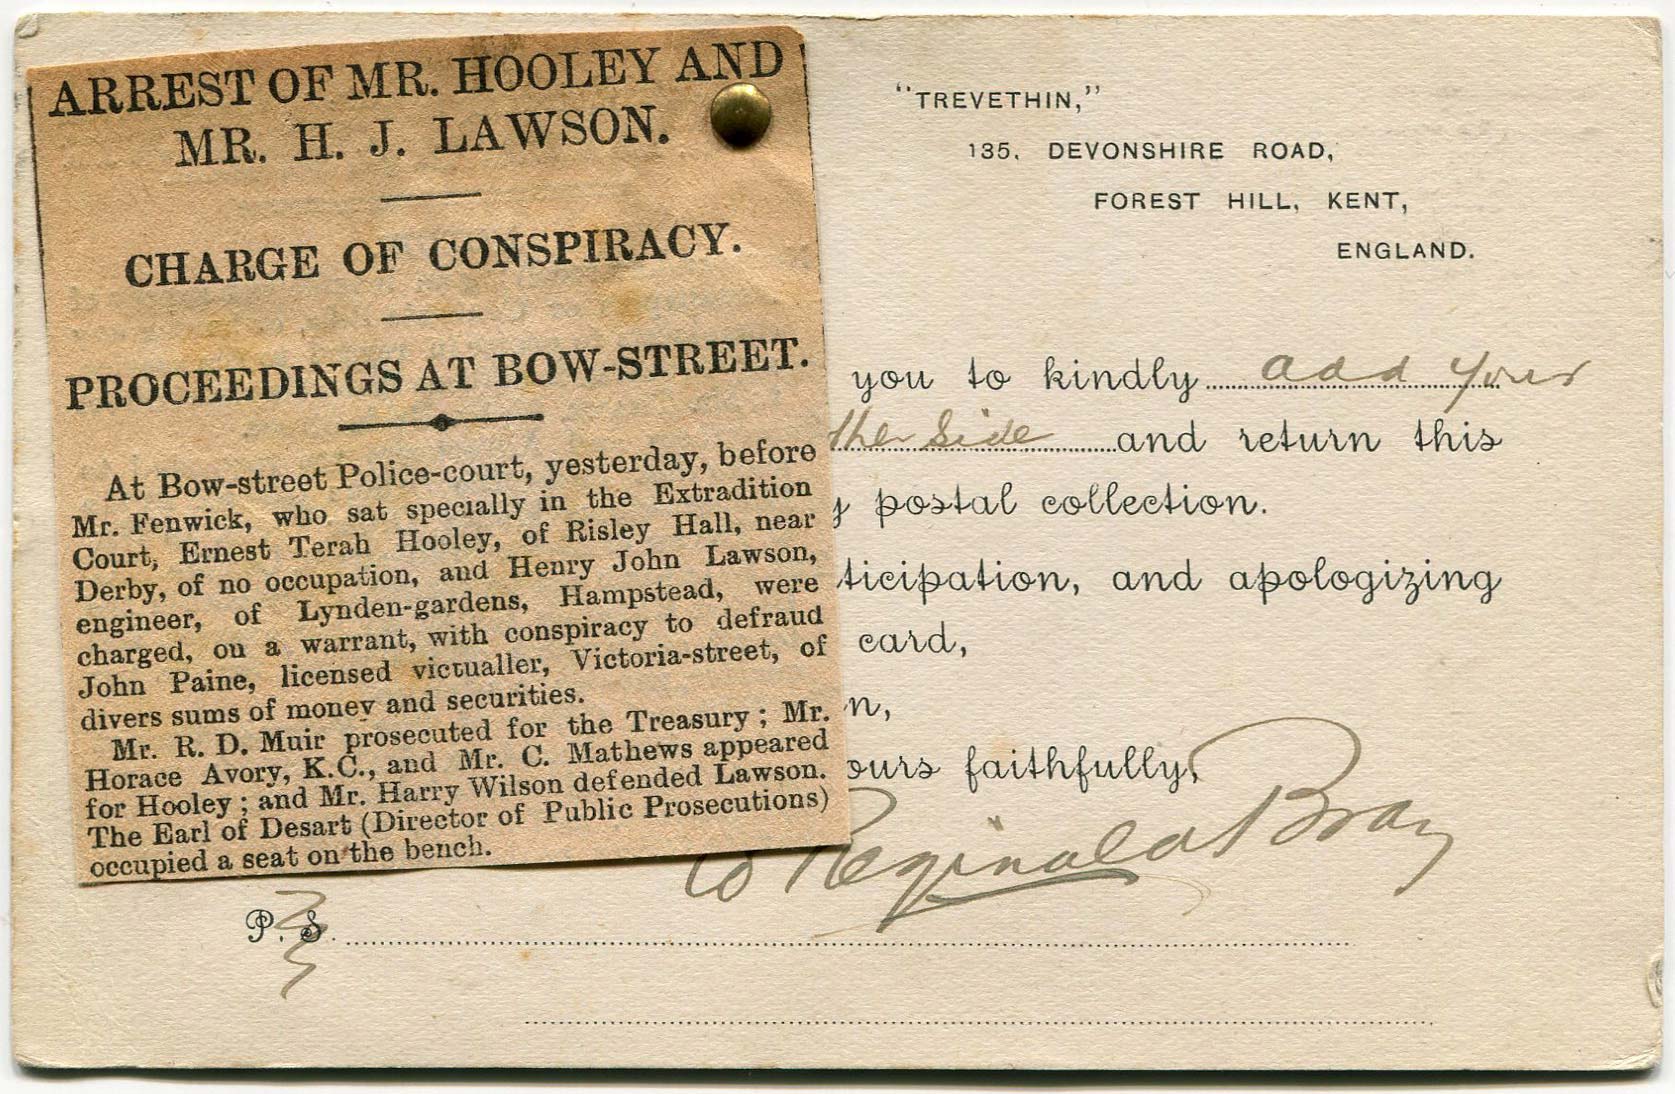 ARREST OF MR. HOOLEY AND
MR. H. J. LAWSON.
CHARGE OF CONSPIRACY.
PROCEEDINGS AT BOW-STREET.
At Bow-street Police-court, yesterday, before
Mr. Fenwick, who sat specially in the Extradition
Court, Ernest Terah Hooley, of Risley Hall, near
Derby, of no occupation, and Henry John Lawson,
engineer, of Lynden-gardens, Hampstead, were
charged, on a warrant, with conspiracy to defraud
John Paine, licensed victualler, Victoria-street, of
divers sums of money and securities.
Mr. R. D. Muir prosecuted for the Treasury; Mr.
Horace Avory, K.C., and Mr. C. Mathews appeared
for Hooley; and Mr. Harry Wilson defended Lawson.
The Earl of Desart (Director of Public Prosecutions)
occupied a seat on the bench.
"TREVETHIN,"
135, DEVONSHIRE ROAD,
FOREST HILL, KENT,
ENGLAND.
you to kindly add your
ther side and return this
y postal collection.
ticipation, and apologizing
card,
n,
ours faithfully,
W Reginald Bray
P.S.